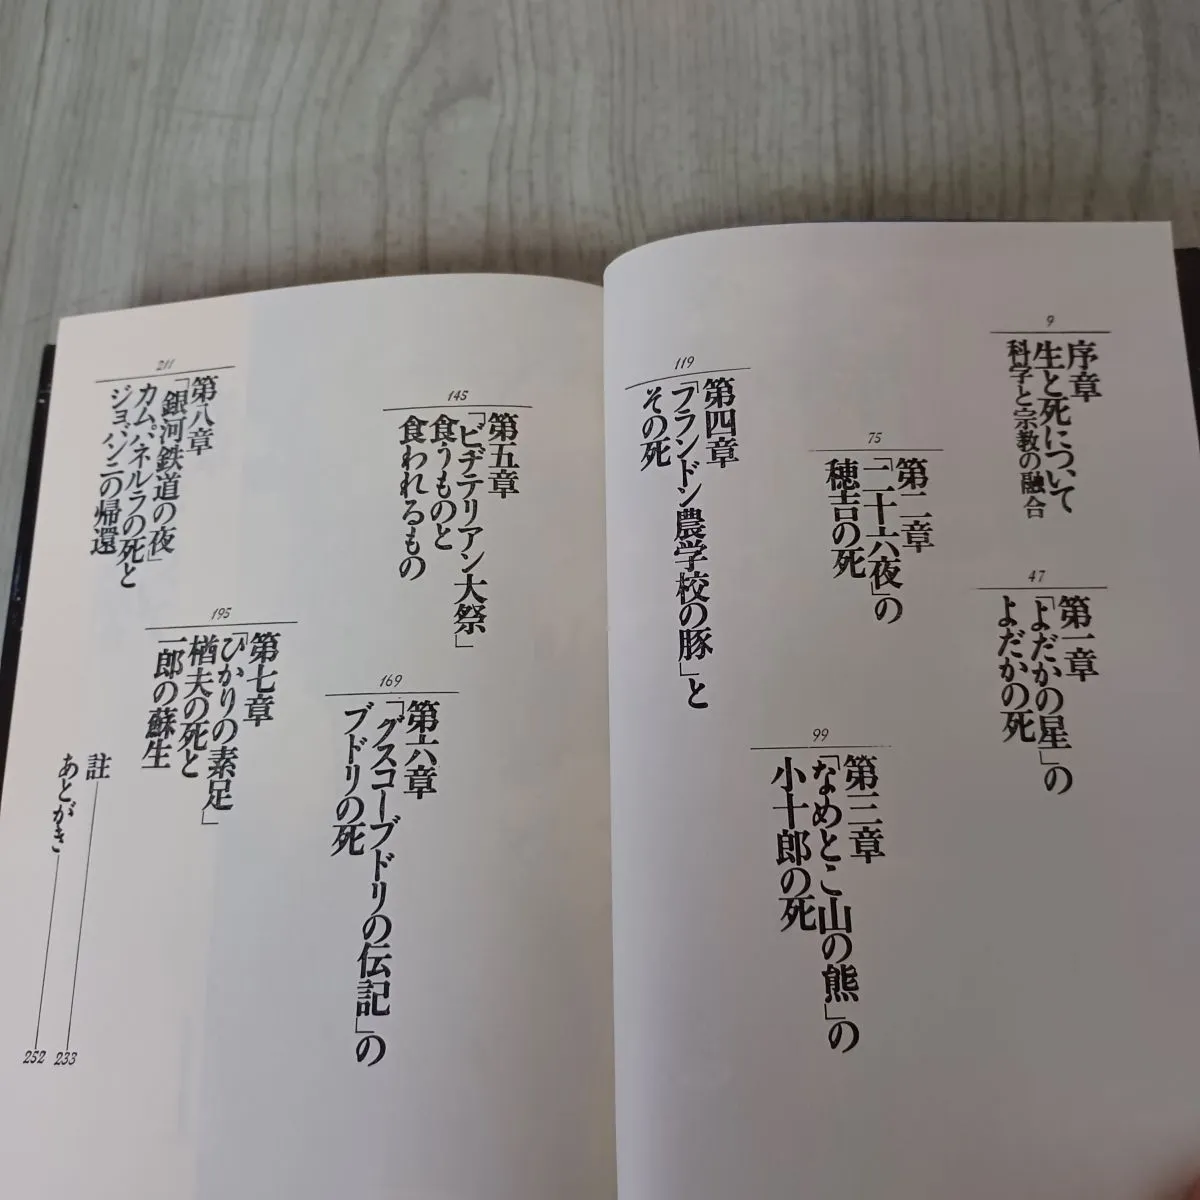 9
序章
生と死について
科学と宗教の融合
47
第一章
「よだかの星」の
よだかの死
75
第二章
「二十六夜」の
穂吉の死
99
第三章
「なめとこ山の熊」の
小十郎の死
119
第四章
「フランドン農学校の豚」と
その死
145
第五章
「ビヂテリアン大祭」
食うものと
食われるもの
169
第六章
「グスコーブドリの伝記」の
ブドリの死
195
第七章
「ひかりの素足」
楢夫の死と
一郎の蘇生
211
第八章
「銀河鉄道の夜」
カムパネルラの死と
ジョバンニの帰還
註 233
あとがき 252